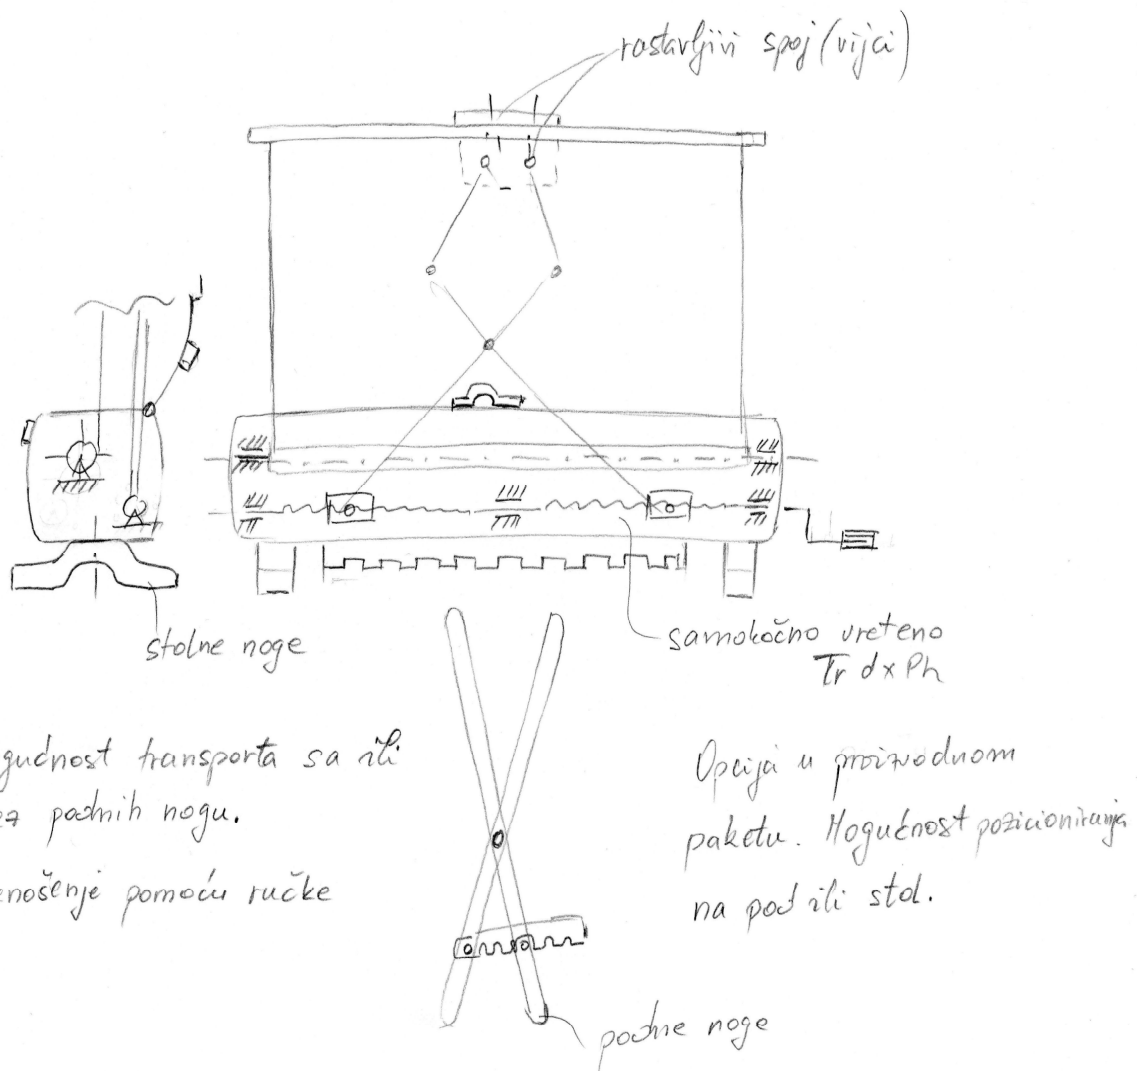 rastavljivi spoj (vijci)
stolne noge
samokočno vreteno
Tr d x Ph
gućnost transporta sa ili
ez podnih nogu.
enošenje pomoću ručke
Opcija u proizvodnom
paketu. Mogućnost pozicioniranja
na pod ili stol.
podne noge